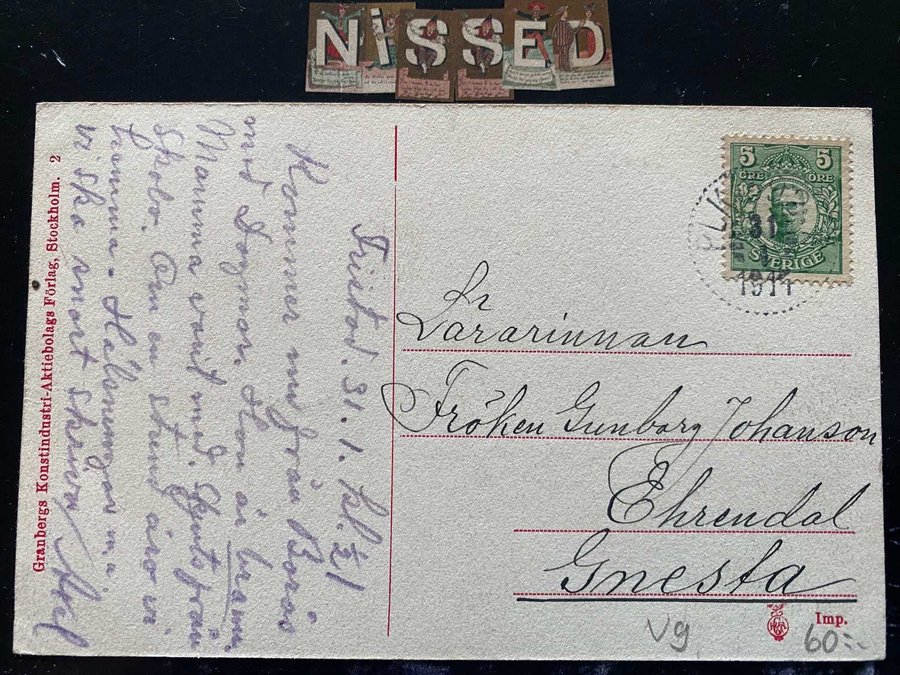 NiSSED
5 5
ÖRE ÖRE
SVERIGE
31
1911
Tristod. 31. 1. kl. ½1
Kommer nu från Borås
med Dagmar. Hon är bra nu.
Mamma varit med. Skjuts från
Skolo. Om en stund äro vi
hemma. Hälsningar m. a.
vi ska snart skriva
Granbergs Konstindustri-Aktiebolags Förlag, Stockholm. 2
Lärarinnan
Fröken Gunborg Johanson
Ehrendal
Gnesta
Imp.
Vg
60:-